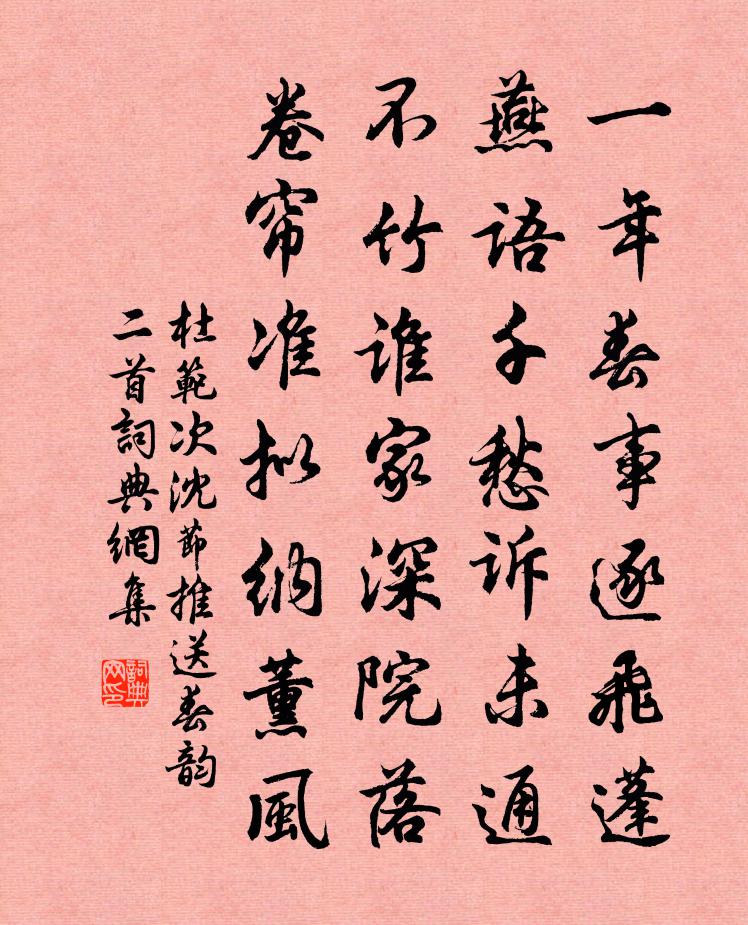 一年春事逐飛蓬
燕語千愁訴未通
不竹誰家深院落
卷帘准拟納薰風
杜範次沈節推送春韵
二首詞典網集
詞典網印